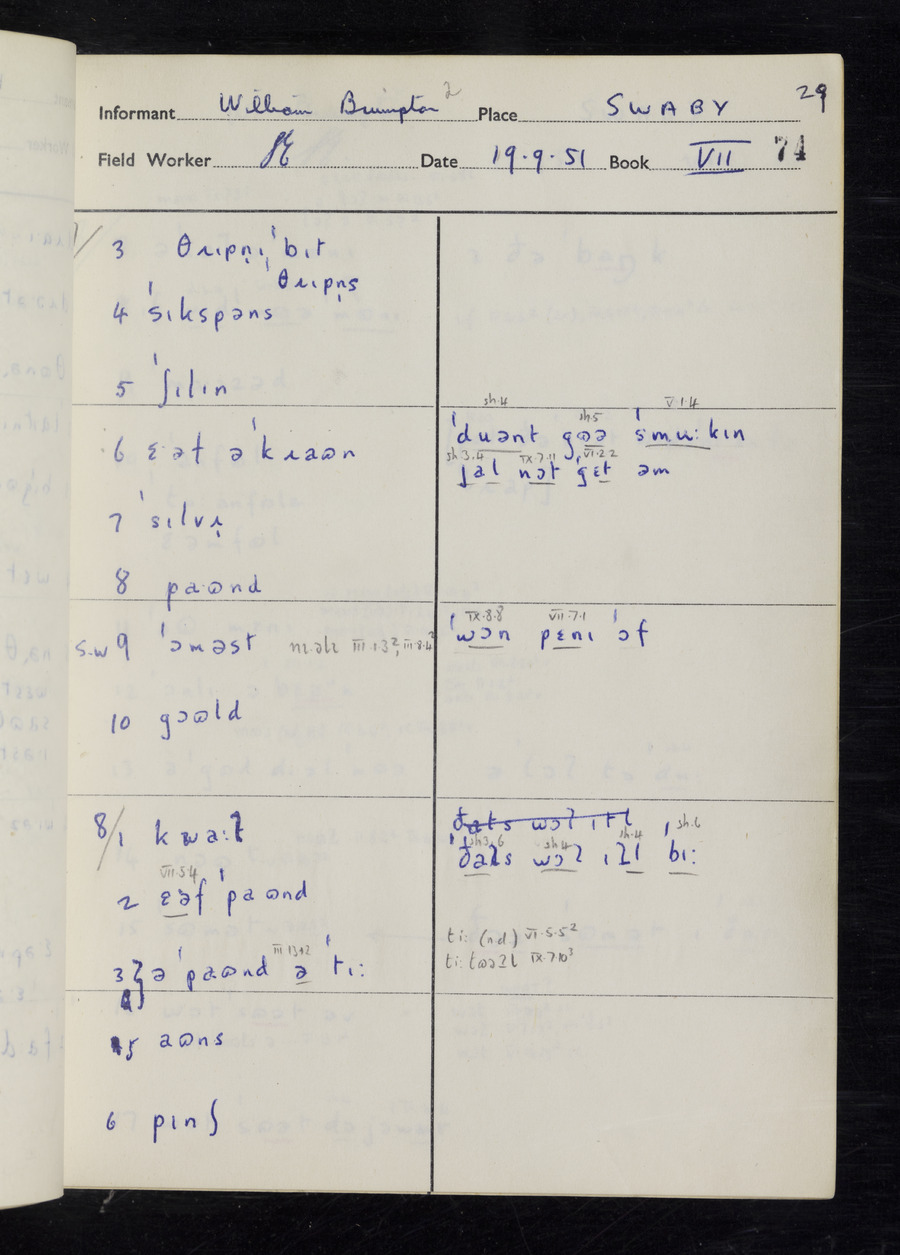 29
Informant William Brumpton 2 Place SWABY
Field Worker Date 19·9·51 Book VII 74
7/ 3 θɹɪpn̩ɪˈbɪt
ˈθɹɪpn̩s
4 ˈsɪkspəns
5 ˈʃɪlɪn
6 ɛət əˈkɹaʊn
7 ˈsɪlvɹ̩
8 paʊnd
S.W 9 ˈɔməst nɪəlɪ III·1·3², III·8·4²
10 gɔʊld
8/1 kwaːʔt
VII·5·4
2 ɛəf ˈpaʊnd
III·13·2
3 } ə ˈpaʊnd ə ˈtɪː
4
5 aʊns
6 pɪnʃ
sh.4 sh.5 V·1·4
ˈduənt gʊə ˈsmuːkɪn
sh 3.4 IX·7·11 VI·2·2
jal nɔt ˈgɛt əm
IX·8·8 VII·7·1
ˈwɔn pɛnɪ ˈɔf
ðats wɔʔ ɪtl
sh 3.6 sh 4 sh.4 sh.6
ˈðaʔs wɔʔ ɪʔl biː
tiː (nd) VI·5·5²
tiː IX·7·10³